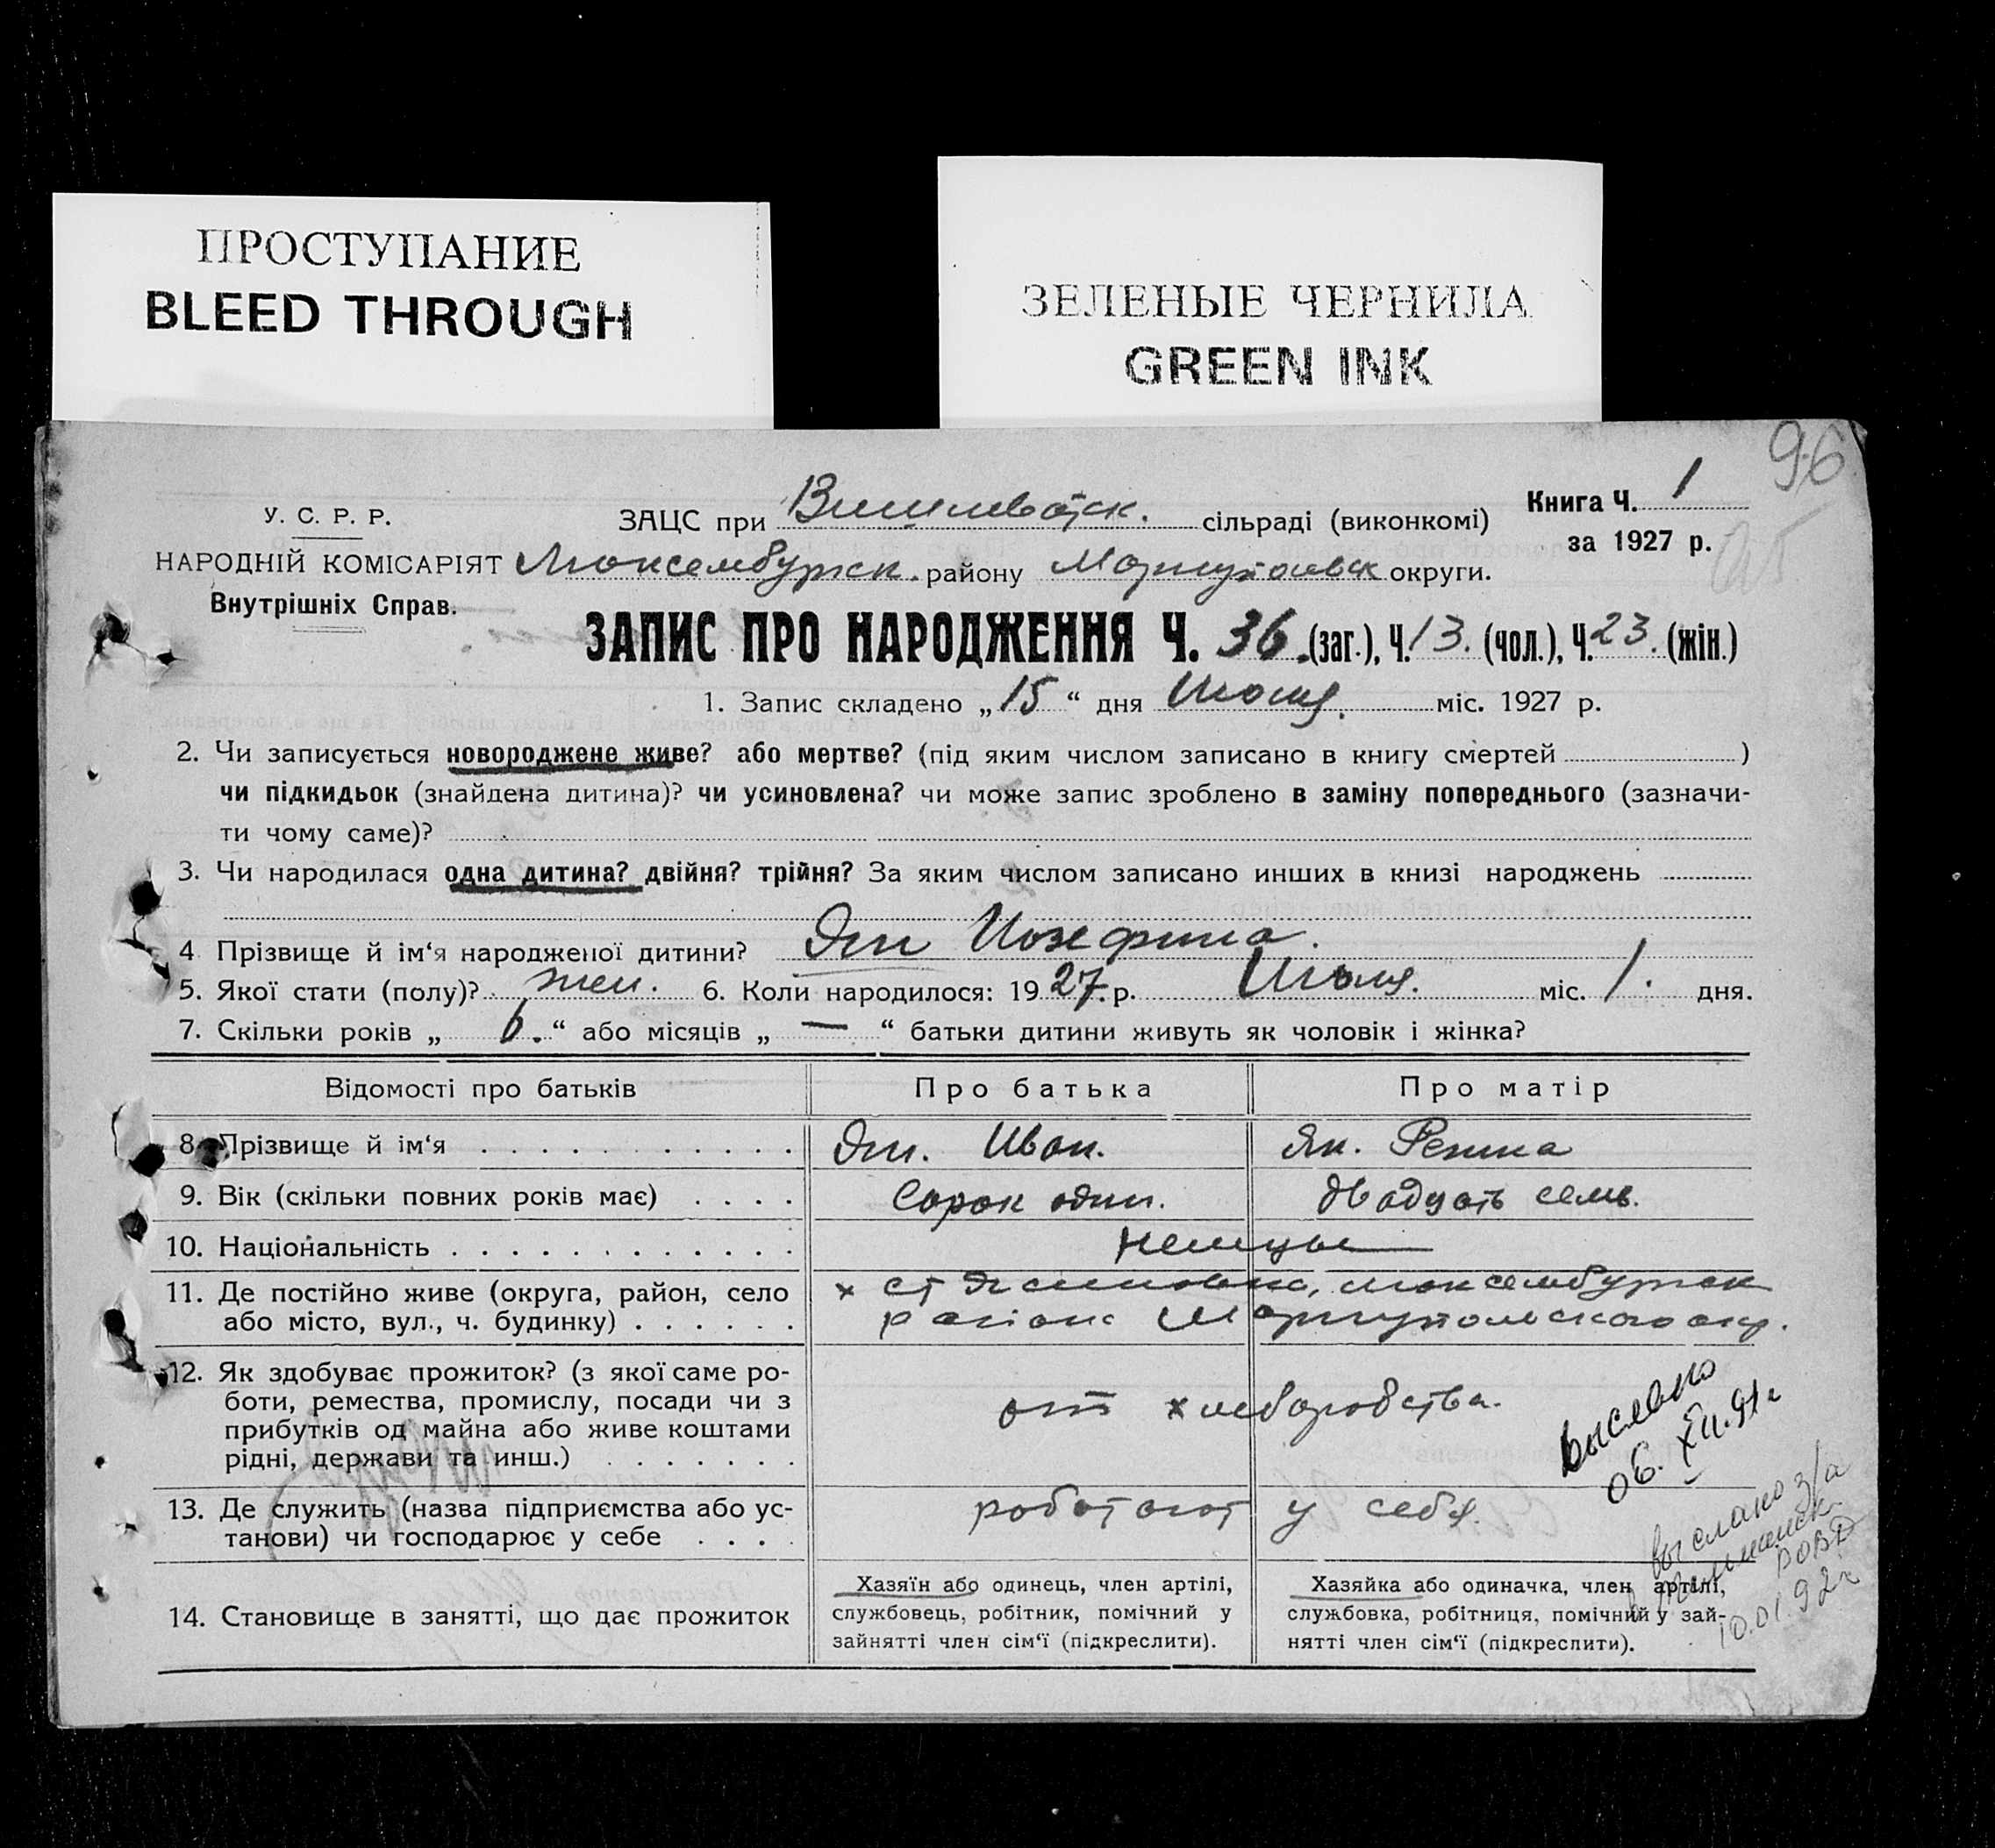 ПРОСТУПАНИЕ
BLEED THROUGH
ЗЕЛЕНЫЕ ЧЕРНИЛА
GREEN INK
96
У. С. Р. Р.
НАРОДНІЙ КОМІСАРІЯТ
Внутрішніх Справ.
ЗАЦС при сільраді (виконкомі)
Люксембургск. району Мариупольск округи.
Книга Ч. 1
за 1927 р.
ЗАПИС ПРО НАРОДЖЕННЯ Ч. 36. (заг.), Ч. 13. (чол.), Ч. 23. (жін.)
1. Запис складено „ 15 “ дня Июля. міс. 1927 р.
2. Чи записується новороджене живе? або мертве? (під яким числом записано в книгу смертей )
чи підкидьок (знайдена дитина)? чи усиновлена? чи може запис зроблено в заміну попереднього (зазначи-
ти чому саме)?
3. Чи народилася одна дитина? двійня? трійня? За яким числом записано инших в книзі народжень
4 Прізвище й ім‘я народженої дитини? Ян Иозефина.
5. Якої стати (полу)? жен. 6. Коли народилося: 1927. р. Июля. міс. 1. дня.
7. Скільки років „ 6. “ або місяців „ — “ батьки дитини живуть як чоловік і жінка?
Відомості про батьків
Про батька
Про матір
8. Прізвище й ім‘я
Ян. Иван.
Ян. Регина
9. Вік (скільки повних років має)
Сорок один.
двадцать семь.
10. Національність
Немцы
11. Де постійно живе (округа, район, село
або місто, вул., ч. будинку)
Люксембургск
района Мариупольского окр.
12. Як здобуває прожиток? (з якої саме ро-
боти, ремества, промислу, посади чи з
прибутків од майна або живе коштами
рідні, держави та инш.)
от хлебородства.
13. Де служить (назва підприємства або ус-
танови) чи господарює у себе
работают у себя.
14. Становище в занятті, що дає прожиток
Хазяїн або одинець, член артілі,
службовець, робітник, помічний у
зайнятті член сім‘ї (підкреслити).
Хазяйка або одиначка, член артілі,
службовка, робітниця, помічний у зай-
нятті член сім‘ї (підкреслити).
выслано
06. XII. 91г
выслано з/а
РОВД
10.01.92г